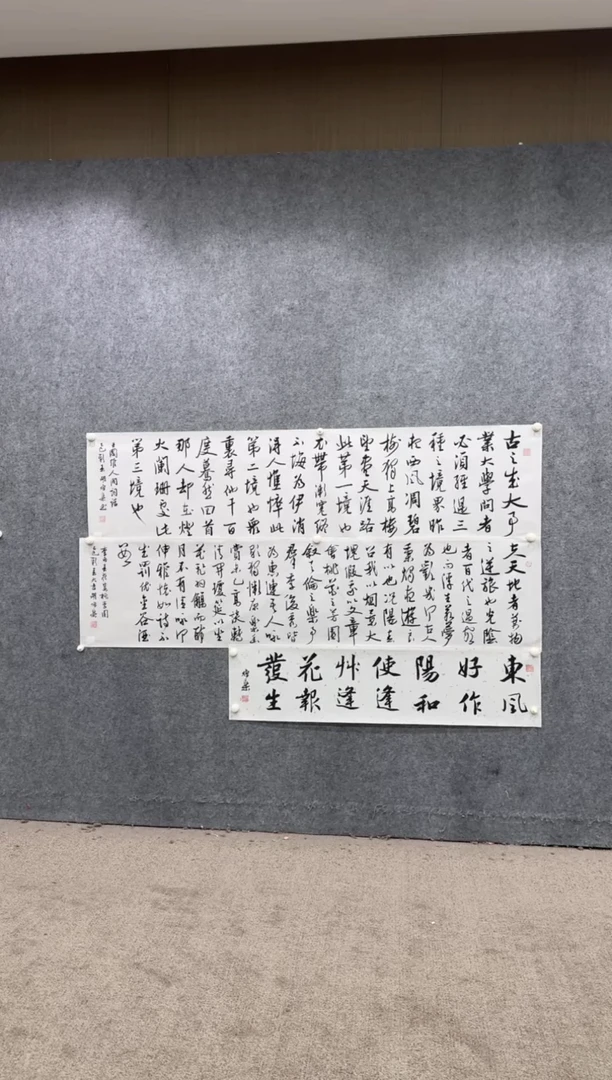 古之成大事
業大學問者
必須經過三
種之境界昨
夜西風凋碧
樹獨上高樓
望盡天涯路
此第一境也
衣帶漸寬終
不悔為伊消
得人憔悴此
第二境也衆
裏尋他千百
度驀然回首
那人却在燈
火闌珊處此
第三境也
王國維人间詞話
夫天地者萬物
之逆旅也光陰
者百代之過客
也而浮生若夢
為歡幾何古人
秉燭夜遊良
有以也況陽春
召我以烟景大
塊假我以文章
會桃花之芳園
叙天倫之樂事
群季俊秀皆
為惠連吾人詠
歌獨慚康樂幽
賞未已高談轉
清開瓊筵以坐
花飛羽觴而醉
月不有佳詠何
伸雅懷如詩不
成罰依金谷酒
數
東風
好作
陽和
使逢
艸逢
花報
發生